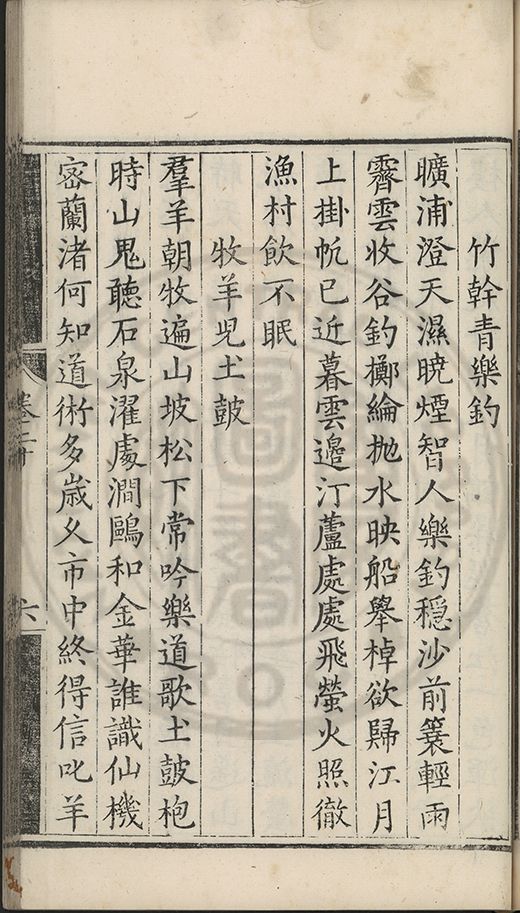 竹幹青樂釣
曠浦澄天濕曉煙智人樂釣穩沙前蓑輕雨
霽雲收谷釣擲綸拋水映船舉棹欲歸江月
上掛帆已近暮雲邊汀蘆處處飛螢火照徹
漁村飲不眠
牧羊児土鼓
羣羊朝牧遍山坡松下常吟樂道歌土鼓枹
時山鬼聽石泉濯處澗鷗和金華誰識仙機
密蘭渚何知道術多歲久市中終得信叱羊
六